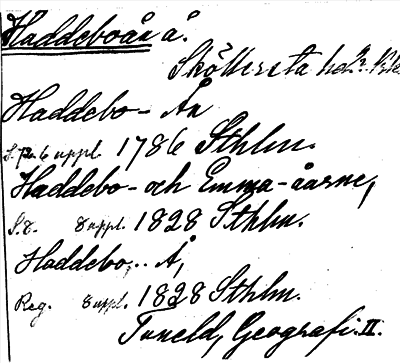 Haddeboån å.
Sköllersta hd
Haddebo-Ån
6 uppl. 1786 Sthlm.
Haddebo- och Emma-åarne,
S. 8. 8 uppl. 1828 Sthlm.
Haddebo, .. Å,
Reg. 8 uppl. 1828 Sthlm.
Tuneld, Geografi. II.